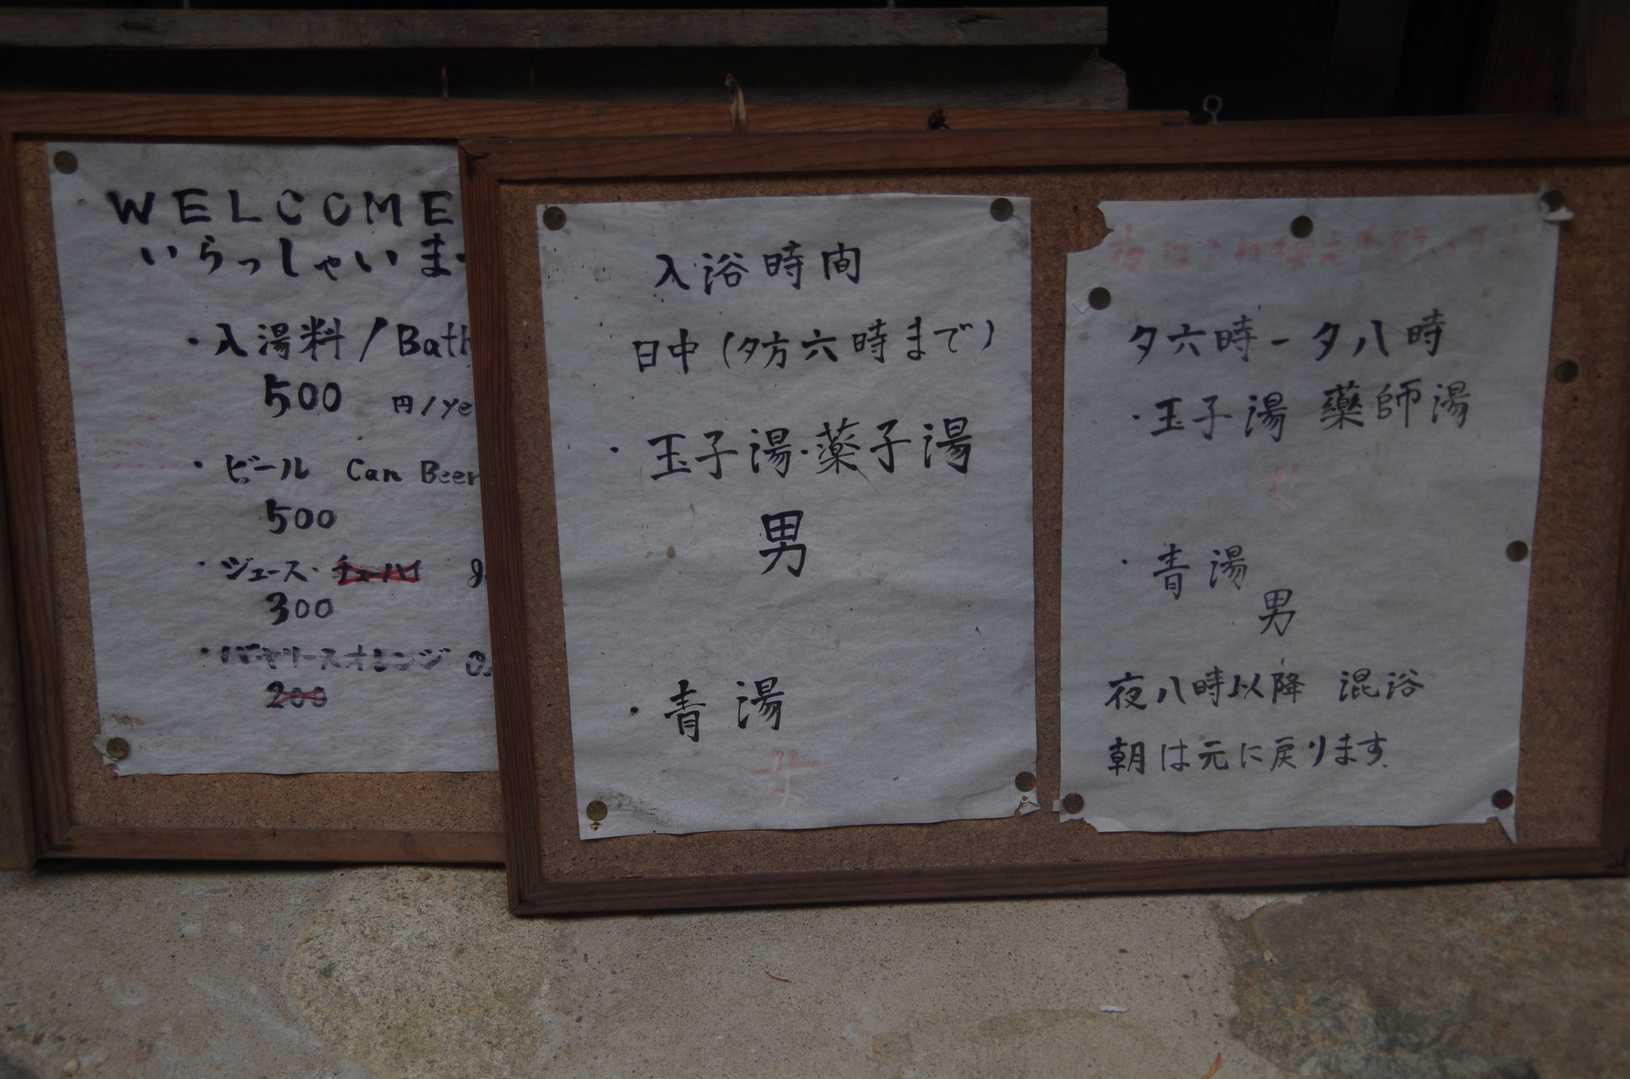 WELCOME
いらっしゃいま
・入湯料/Bath
500 円/ye
・ビール Can Beer
500
・ジュース・チューハイ
300
・バヤリースオレンジ
200
入浴時間
日中(夕方六時まで)
・玉子湯・薬子湯
男
・青湯
女
夕六時-夕八時
・玉子湯 薬師湯
女
・青湯
男
夜八時以降 混浴
朝は元に戻ります。